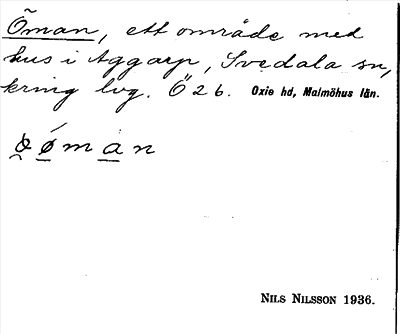 Öman, ett område med
hus i Aggarp, Svedala sn,
kring lvg. Ö 26. Oxie hd, Malmöhus län.
ø̀ m a n
NILS NILSSON 1936.